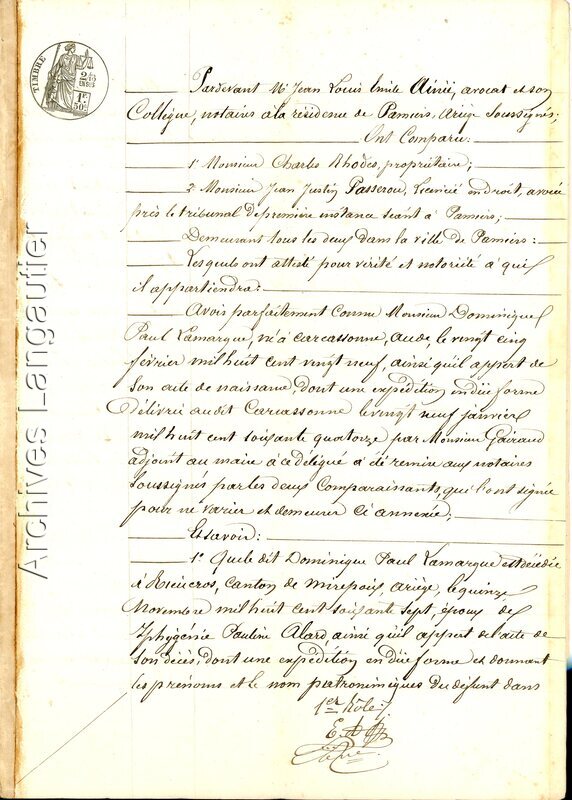 TIMBRE
Pardevant Mr Jean Louis Emile Ainié, avocat et son
Collègue, notaires à la résidence de Pamiers, Ariège soussignés;
Ont Comparu:
1° Monsieur Charles Rhodes, propriétaire;
2° Monsieur Jean Justin Passerou, licencié en droit, avoué
près le tribunal de première instance séant à Pamiers;
Demeurant tous les deux dans la ville de Pamiers:
Lesquels ont attesté pour vérité et notoriété à qui
il appartiendra:
Avoir parfaitement connu Monsieur Dominique
Paul Lamarque, né à Carcassonne, Aude, le vingt cinq
février mil huit cent vingt neuf, ainsi qu'il appert de
son acte de naissance, dont une expédition en düe forme
délivrée audit Carcassonne le vingt neuf janvier
mil huit cent soixante quatorze par Monsieur Gairaud
adjoint au maire à ce délégué a été remise aux notaires
soussignés par les deux Comparaissants, qui l'ont signée
pour ne varier et demeurer ci annexée;
Et savoir:
1° Que le dit Dominique Paul Lamarque est décédé
à Rieucros, Canton de Mirepoix, Ariège, le quinze
Novembre mil huit cent soixante sept, époux de
Iphygénie Pauline Alard, ainsi qu'il appert de l'acte de
son décès, dont une expédition en düe forme et donnant
les prénoms et le nom patronimiques du défunt dans
1er Rôle
Archives Langautier